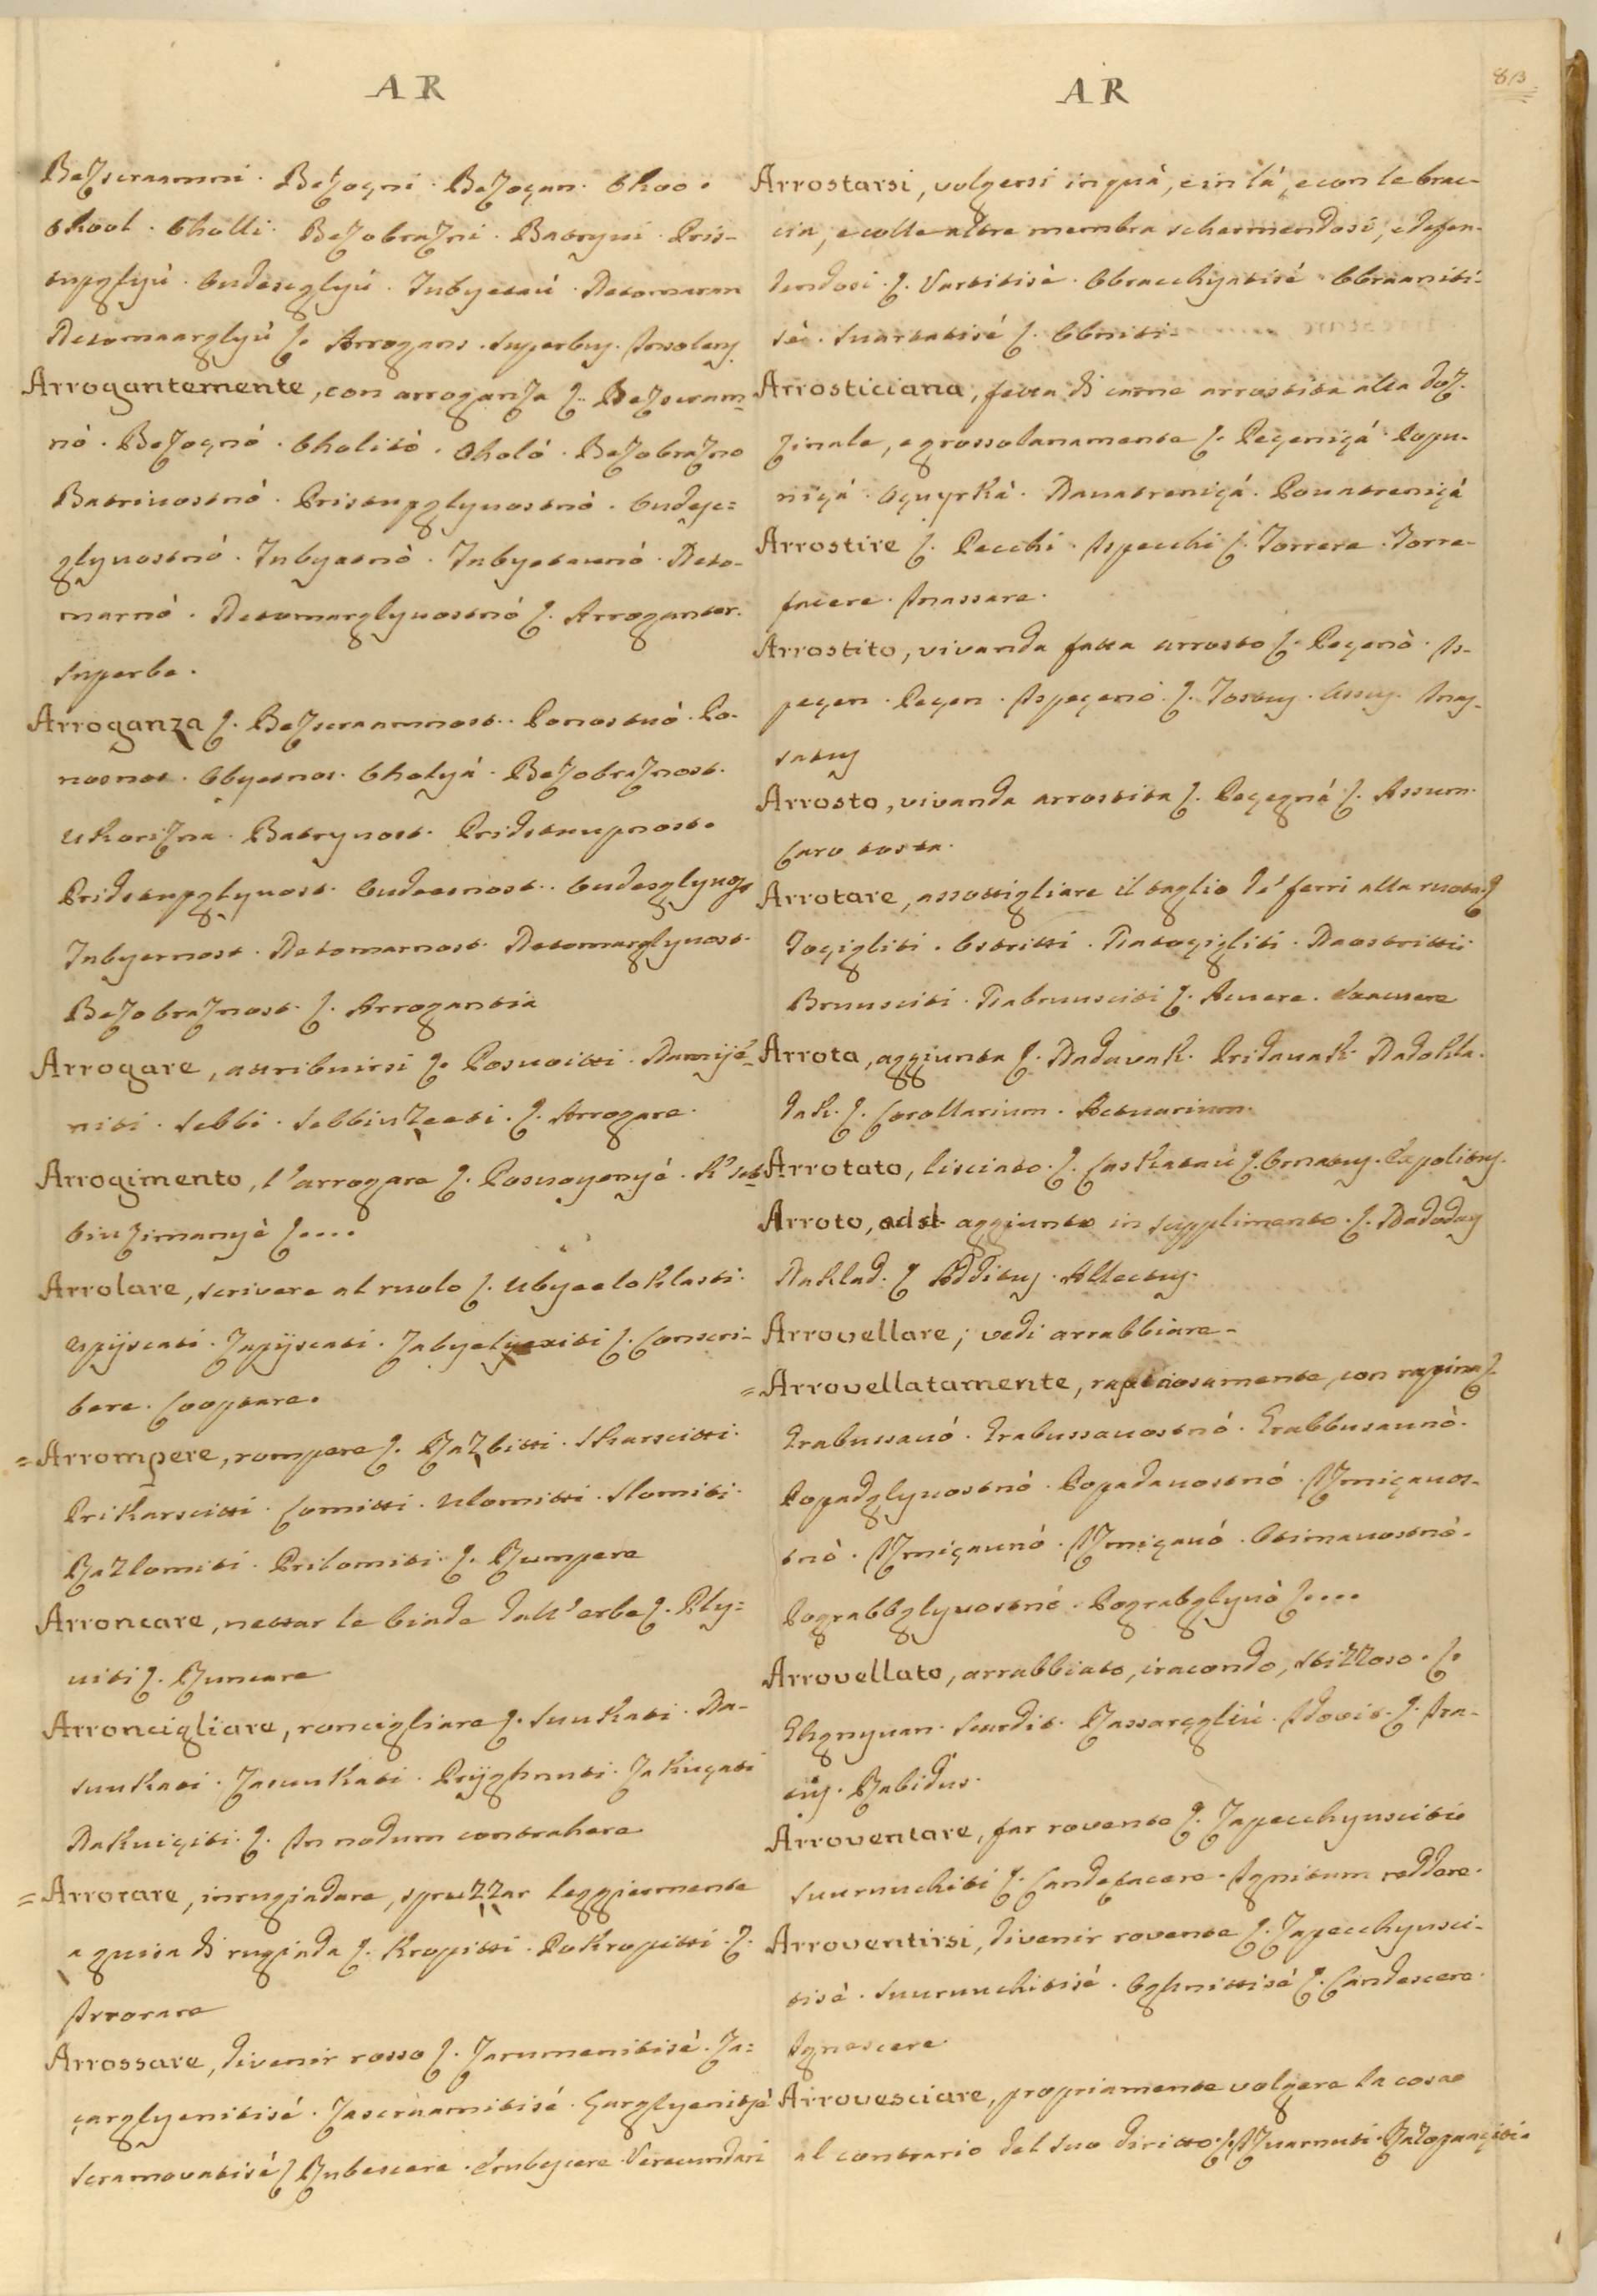 AR
Bezscraamni. Bezoçni. Bezoçan. Ohoo.
Ohool. Oholli. Bezobrazni. Batryui. Pris-
tupgliyù. Detomaran
Detomaarglyù ſ. Arrogans. Superbus. Insolens.
Arrogantemente, con arroganza ſ. Bezscram-
nò. Bezoçnó. Oholitò. Oholó. Bezobrazno
Batriuostnó. Pristupglyuostnò.
glyuostnó. Deto-
marnò. Detomarglyuostnó ſ. Arroganter.
Superbe.
Arroganza ſ. Bezscraamnost. Ponostuò. Po-
nosnos. Obyesnos. Oholyá. Bezobraznost.
Ukorizna. Batryuost. Pridstuupnost.
Pridstupglyuost.
Detomarnost. Detomarglyuost.
Bezobraznost. ſ. Arrogantia
Arrogare, attribuirsi ſ. Posuoitti. Namijé-
niti. Sebbi. ſ. Arrogare.
Arrogimento, l'arrogare ſ. Posuoyenyé. K'seb-
biuzimanyè ſ....
Arrolare, scrivere al ruolo ſ. Ubyeeloklasti.
Upijscati. Zapijscati. ſ. Conscri-
bere. Cooptare.
= Arrompere, rompere ſ. Razbitti. Skarscitti.
Prikarscitti. Lomitti. Ulomitti. Slomiti.
Razlomiti. Prilomiti. ſ. Rumpere
Arroncare, nettar le biade dall'erbe ſ. Ply-
uiti ſ. Runcare
Arroncigliare, roncigliare ſ. Suukati. Na-
suukati. Zasuukati. Prijghnuti. Zakuçati
Nakuiçiti. ſ. In nodum contrahere
= Arrorare, inrugiadare, spruzzar leggiermente
a guisa di rugiada ſ. Kropitti. Pokropitti. ſ.
Irrorare
Arrossare, divenir rosso ſ. Zarumenitisè. Za-
çarglyenitisé. Zascraamitisé. Çarglyenitisè
Scramovatisé ſ Rubescere. Erubescere. Verecundari
AR
83
Arrostarsi, volgersi in quà, e in là, e con le brac-
cia, e colle altre membra schermendosi, e defen-
dendosi. ſ. Vartitisè. Obracchyatisé. Obraaniti-
sè. Suartatisé ſ. Obniti.
Arrosticiana, fetta di carne arrostita alla doz-
zinale, e grossolanamente ſ. Peçeniçá. Popu-
niçá. Oçuyrká. Nauatreniçá. Pouatreniçá
Arrostire ſ. Pecchi. Ispecchi ſ. Torrere. Torre-
facere. Inassare.
Arrostito, vivanda fatta arrosto ſ. Peçenò. Is-
peçen. Peçen. Ispeçenò. ſ. Tostus. Assus. Inas-
satus
Arrosto, vivanda arrostita ſ. Peçegná ſ. Assum.
Caro tosta.
Arrotare, assottigliare il taglio de' ferri alla ruota ſ
Toçigliti. Ostritti. Natoçigliti. Naostritti
Bruusciti. Nabruusciti ſ. Acuere. Exacuere
Arrota, aggiunta ſ. Nadavak. Pridavak. Nadokla-
dak. ſ. Corollarium. Actuarium.
Arrotato, lisciato. ſ. Laskataú ſ. Ornatus. Expolitus.
Arroto, add. aggiunto in supplimento. ſ. Nadoday
Naklad. ſ Additus. Allectus.
Arrovellare; vedi arrabbiare.
= Arrovellatamente, rapinosamente, con rapina ſ.
Grabussauó. Grabussauostnó. Grabbusaunò.
Popadglyuostnò. Popadauostnó. Izmiçauos-
tnò. Izmiçaunó. Izmiçauó. Otimauostnò.
Pograbbglyuostnó. Pograbglyuò ſ....
Arrovellato, arrabbiato, iracondo, stizzoso. ſ.
Ghgnyuan. Scurdit. Idovit. ſ. Ira-
tus. Rabidus.
Arroventare, far rovente ſ. Zapecchyusciti
Suuruuchiti ſ. Candefacere. Ignitum reddere.
Arroventirsi, divenir rovente ſ. Zapecchyusci-
tisè. Suuruuchitisé. Oghnittisé ſ. Candescere.
Ignescere
Arrovesciare, propriamente volgere la cosa
al contrario del suo diritto. ſ. Izuarnuti.